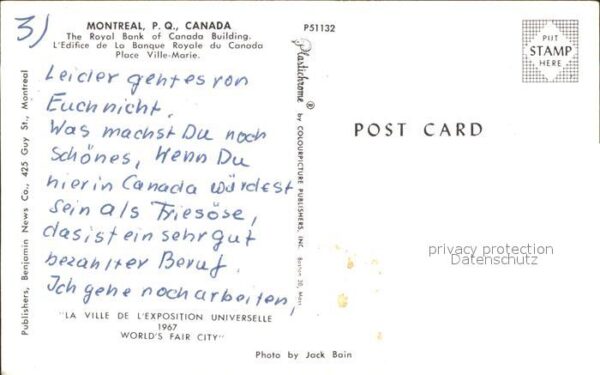 3)
MONTREAL, P. Q., CANADA
The Royal Bank of Canada Building.
L'Edifice de La Banque Royale du Canada
Place Ville-Marie.
P51132
PUT
STAMP
HERE
Leider geht es von
Euch nicht.
Was machst Du noch
schönes, Wenn Du
hier in Canada würdest
sein als Friesöse,
das ist ein sehr gut
bezahlter Beruf.
Ich gehe noch arbeiten,
"LA VILLE DE L'EXPOSITION UNIVERSELLE
1967
WORLD'S FAIR CITY"
Photo by Jack Bain
Publishers, Benjamin News Co., 425 Guy St., Montreal
Plastichrome ® by COLOURPICTURE PUBLISHERS, INC. Boston 30, Mass.
POST CARD
privacy protection
Datenschutz